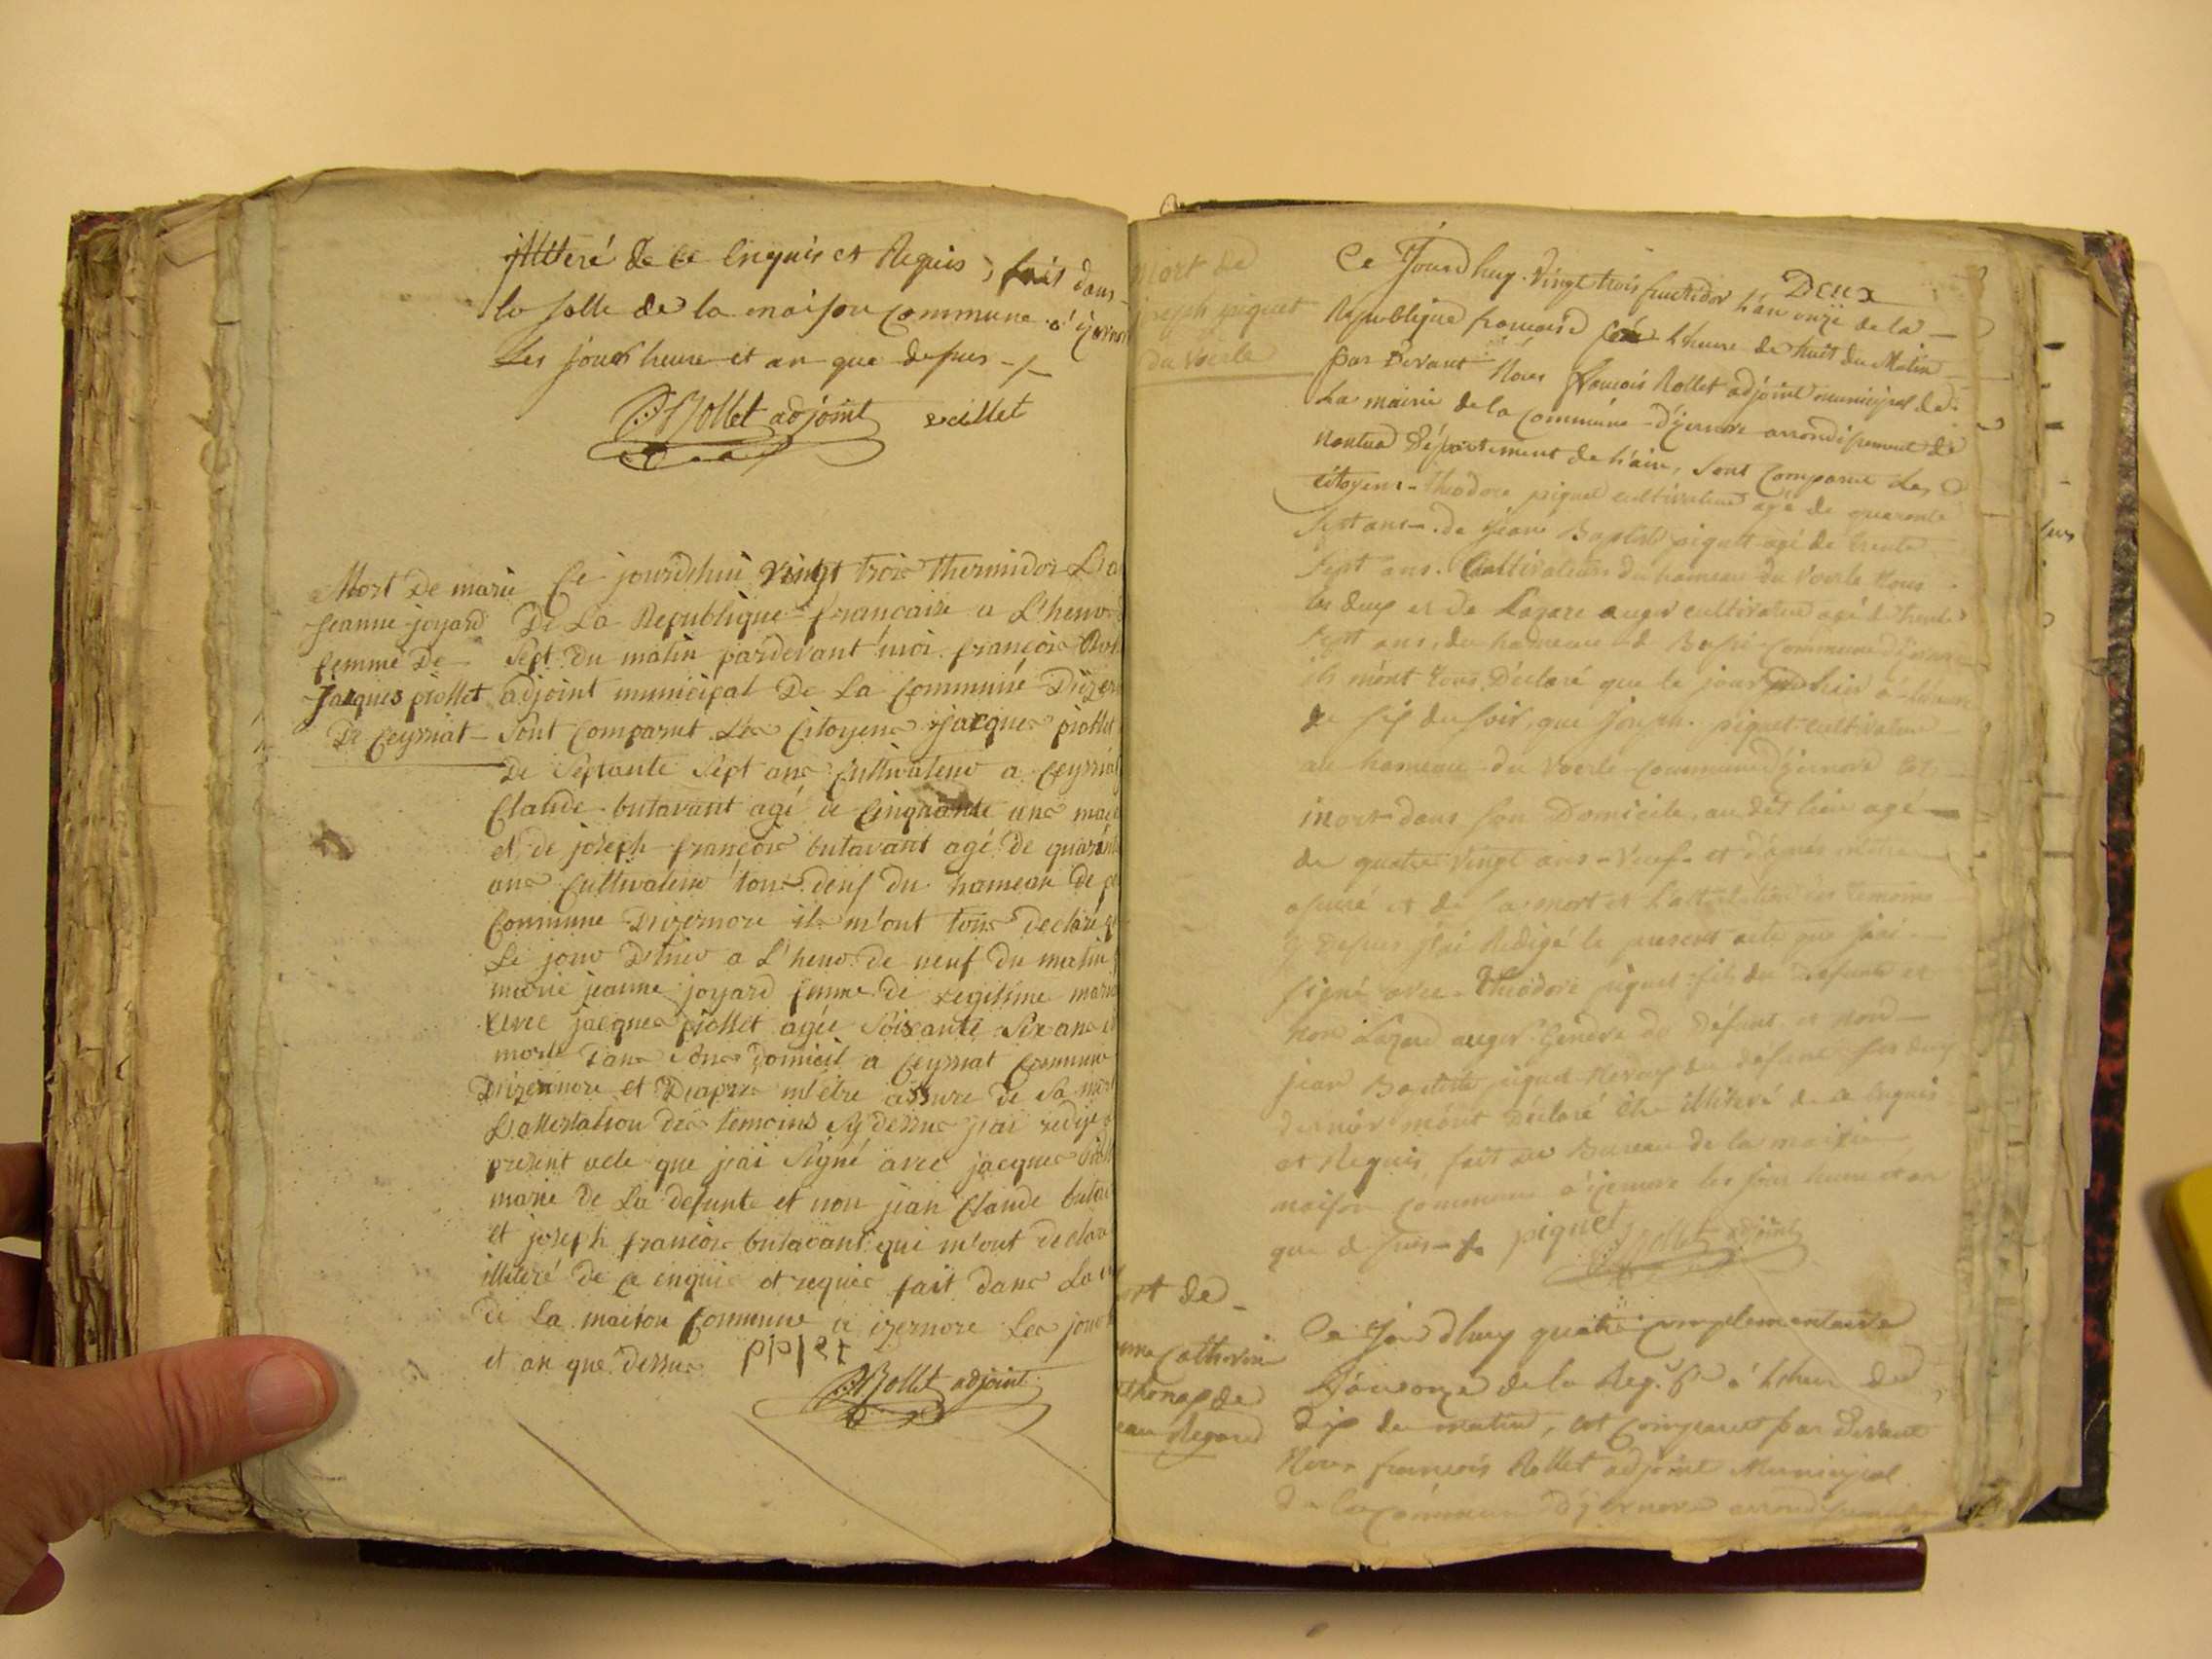 illiteré de ce enquis et Requis, fait dans
la salle de la maison commune a izernore
les jour heure et an que dessus -/-
Rollet adjoint vuillet
Mort De marie
jeanne joyard
femme De
Jacques piollet
De Ceyssiat
Ce jourdhui vingt trois thermidor La
De La Republique française a L'heure
Sept du matin pardevant moi françois Rol
adjoint municipal De La Commune Dizer
Sont Comparut Les Citoyens jacques piollet
De Septante Sept ans Cultivateur a Ceyssiat
Claude butavant agé de Cinquante ans
et de joseph françois butavant agé de quarante
ans Cultivateur tous deux du hameau de
Commune Dizernore ils m'ont tous declaré
Le jour D'hier a L'heure de neuf du matin
marie jeanne joyard femme de Legitime maria
avec jacques piollet agée Soixante Six ans
morte dans Son domicil a Ceyssiat Commune
Dizernore et Dapres m'être assure de Sa mort
Lattestation des temoins Sy dessus j'ai redigé
present acte que j'ai Signé avec jacques piollet
marie de La defunte et non jean Claude butav
et joseph françois butavant qui m'ont declaré
illiteré de Ce enquis et requis fait dans La
de La maison Commune a izernore Les jour
et an que dessus piolet
Rollet adjoint
Mort de
joseph piquet
du Voerle
Deux
Ce Jourdhuy vingt trois fructidor l'an onze de la
Republique françoise a l'heure de huit du Matin
par Devant Nous françois Rollet adjoint municipal de
La mairie de la Commune d'izernore arrondissement de
nantua Département de l'ain, sont comparu les
citoyens Theodore piquet cultivateur agé de quarante
sept ans de jean Baptiste piquet agé de trente
sept ans Cultivateurs du hameau du Voerle tous
les deux et de Lazare auger cultivateur agé de trente
sept ans, du hameau de Commune d'izernore
ils m'ont tous Déclaré que le jour hier a l'heure
de six du soir, que joseph piquet cultivateur
au hameau du Voerle commune d'izernore est
mort dans son Domicile, au dit lieu agé
de quatre vingt ans Veuf et d'après m'être
assuré de sa mort et L'attestation des temoins
sy dessus j'ai Redigé le present acte que j'ai
signé avec Théodore piquet fils du defunt et
non Lazare auger Gendre du defunt et non
jean Baptiste piquet Neveux du defunt ses deux
dernier m'ont Déclaré être illiteré de ce enquis
et Requis, fait au Bureau de la mairie
maison commune a izernore les jour heure et an
que dessus piquet Rollet adjoint
ort de
Catherine
de
eau Regard
Ce Jourdhuy quatre complementaire
l'an onze de la Rep. fse a l'heure de
dix du matin, est comparut par devant
Nous françois Rollet adjoint Municipal
de la commune d'izernore arrondissement